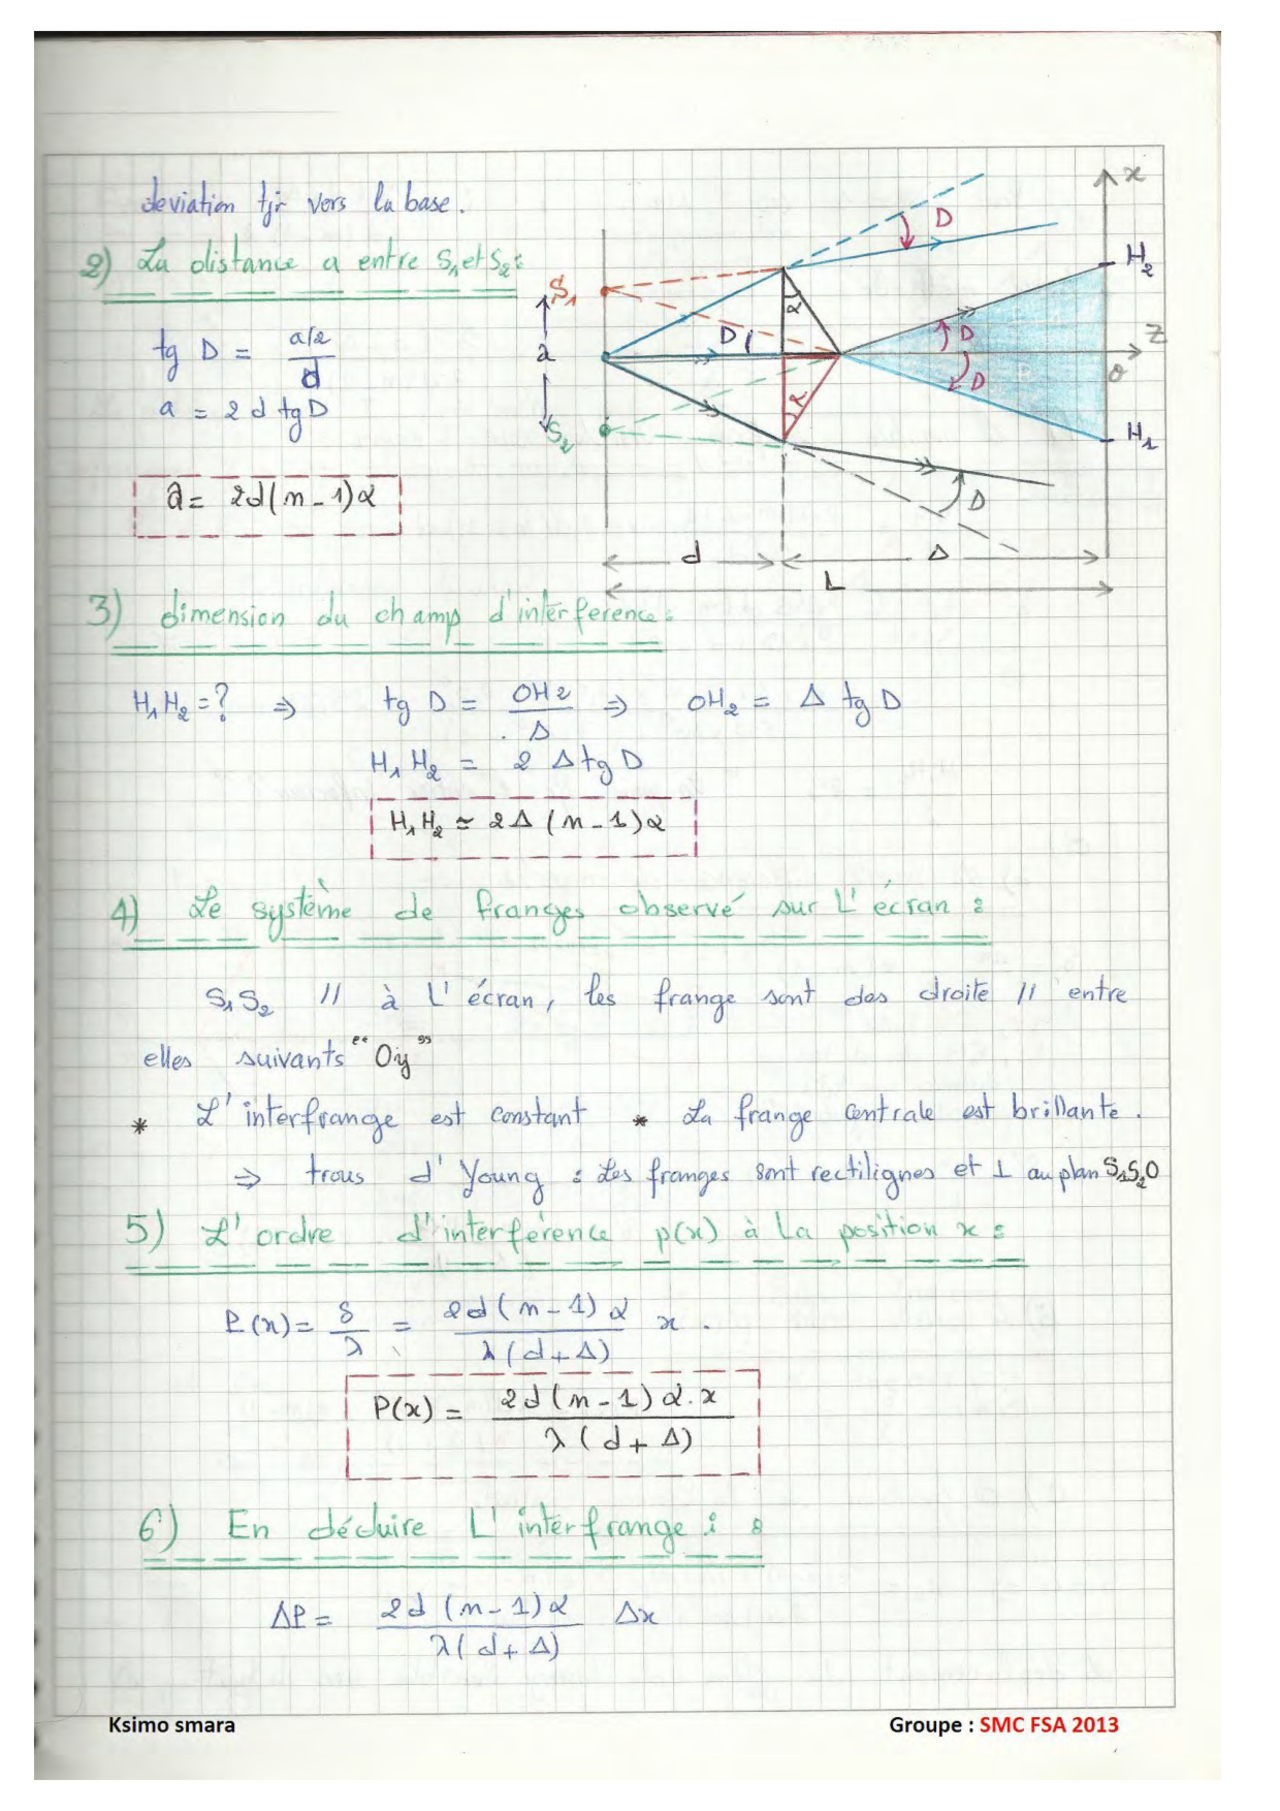 deviation tjr vers la base.
2) La distance a entre S₁ et S₂ :
tg D = (a/2)/d
a = 2 d tg D
a = 2d(n-1)α
x
H₂
D
S₁
α
D
D
Z
a
O
D
α
S₂
H₁
D
d
Δ
L
3) dimension du champ d'interference :
H₁H₂ = ? ⇒ tg D = OH₂/Δ ⇒ OH₂ = Δ tg D
H₁H₂ = 2 Δ tg D
H₁H₂ ≃ 2Δ (n-1)α
4) Le système de franges observé sur L'écran :
S₁S₂ // à L'écran, les frange sont des droite // entre
elles suivants "Oy"
* L'interfrange est constant * La frange centrale est brillante.
⇒ trous d'Young : Les franges sont rectilignes et ⊥ au plan S₁S₂O
5) L'ordre d'interference p(x) à La position x :
P(x) = δ/λ = 2d(n-1)α/λ(d+Δ) x .
P(x) = 2d(n-1)α.x/λ(d+Δ)
6) En déduire L'interfrange i :
ΔP = 2d(n-1)α/λ(d+Δ) Δx
Ksimo smara
Groupe : SMC FSA 2013